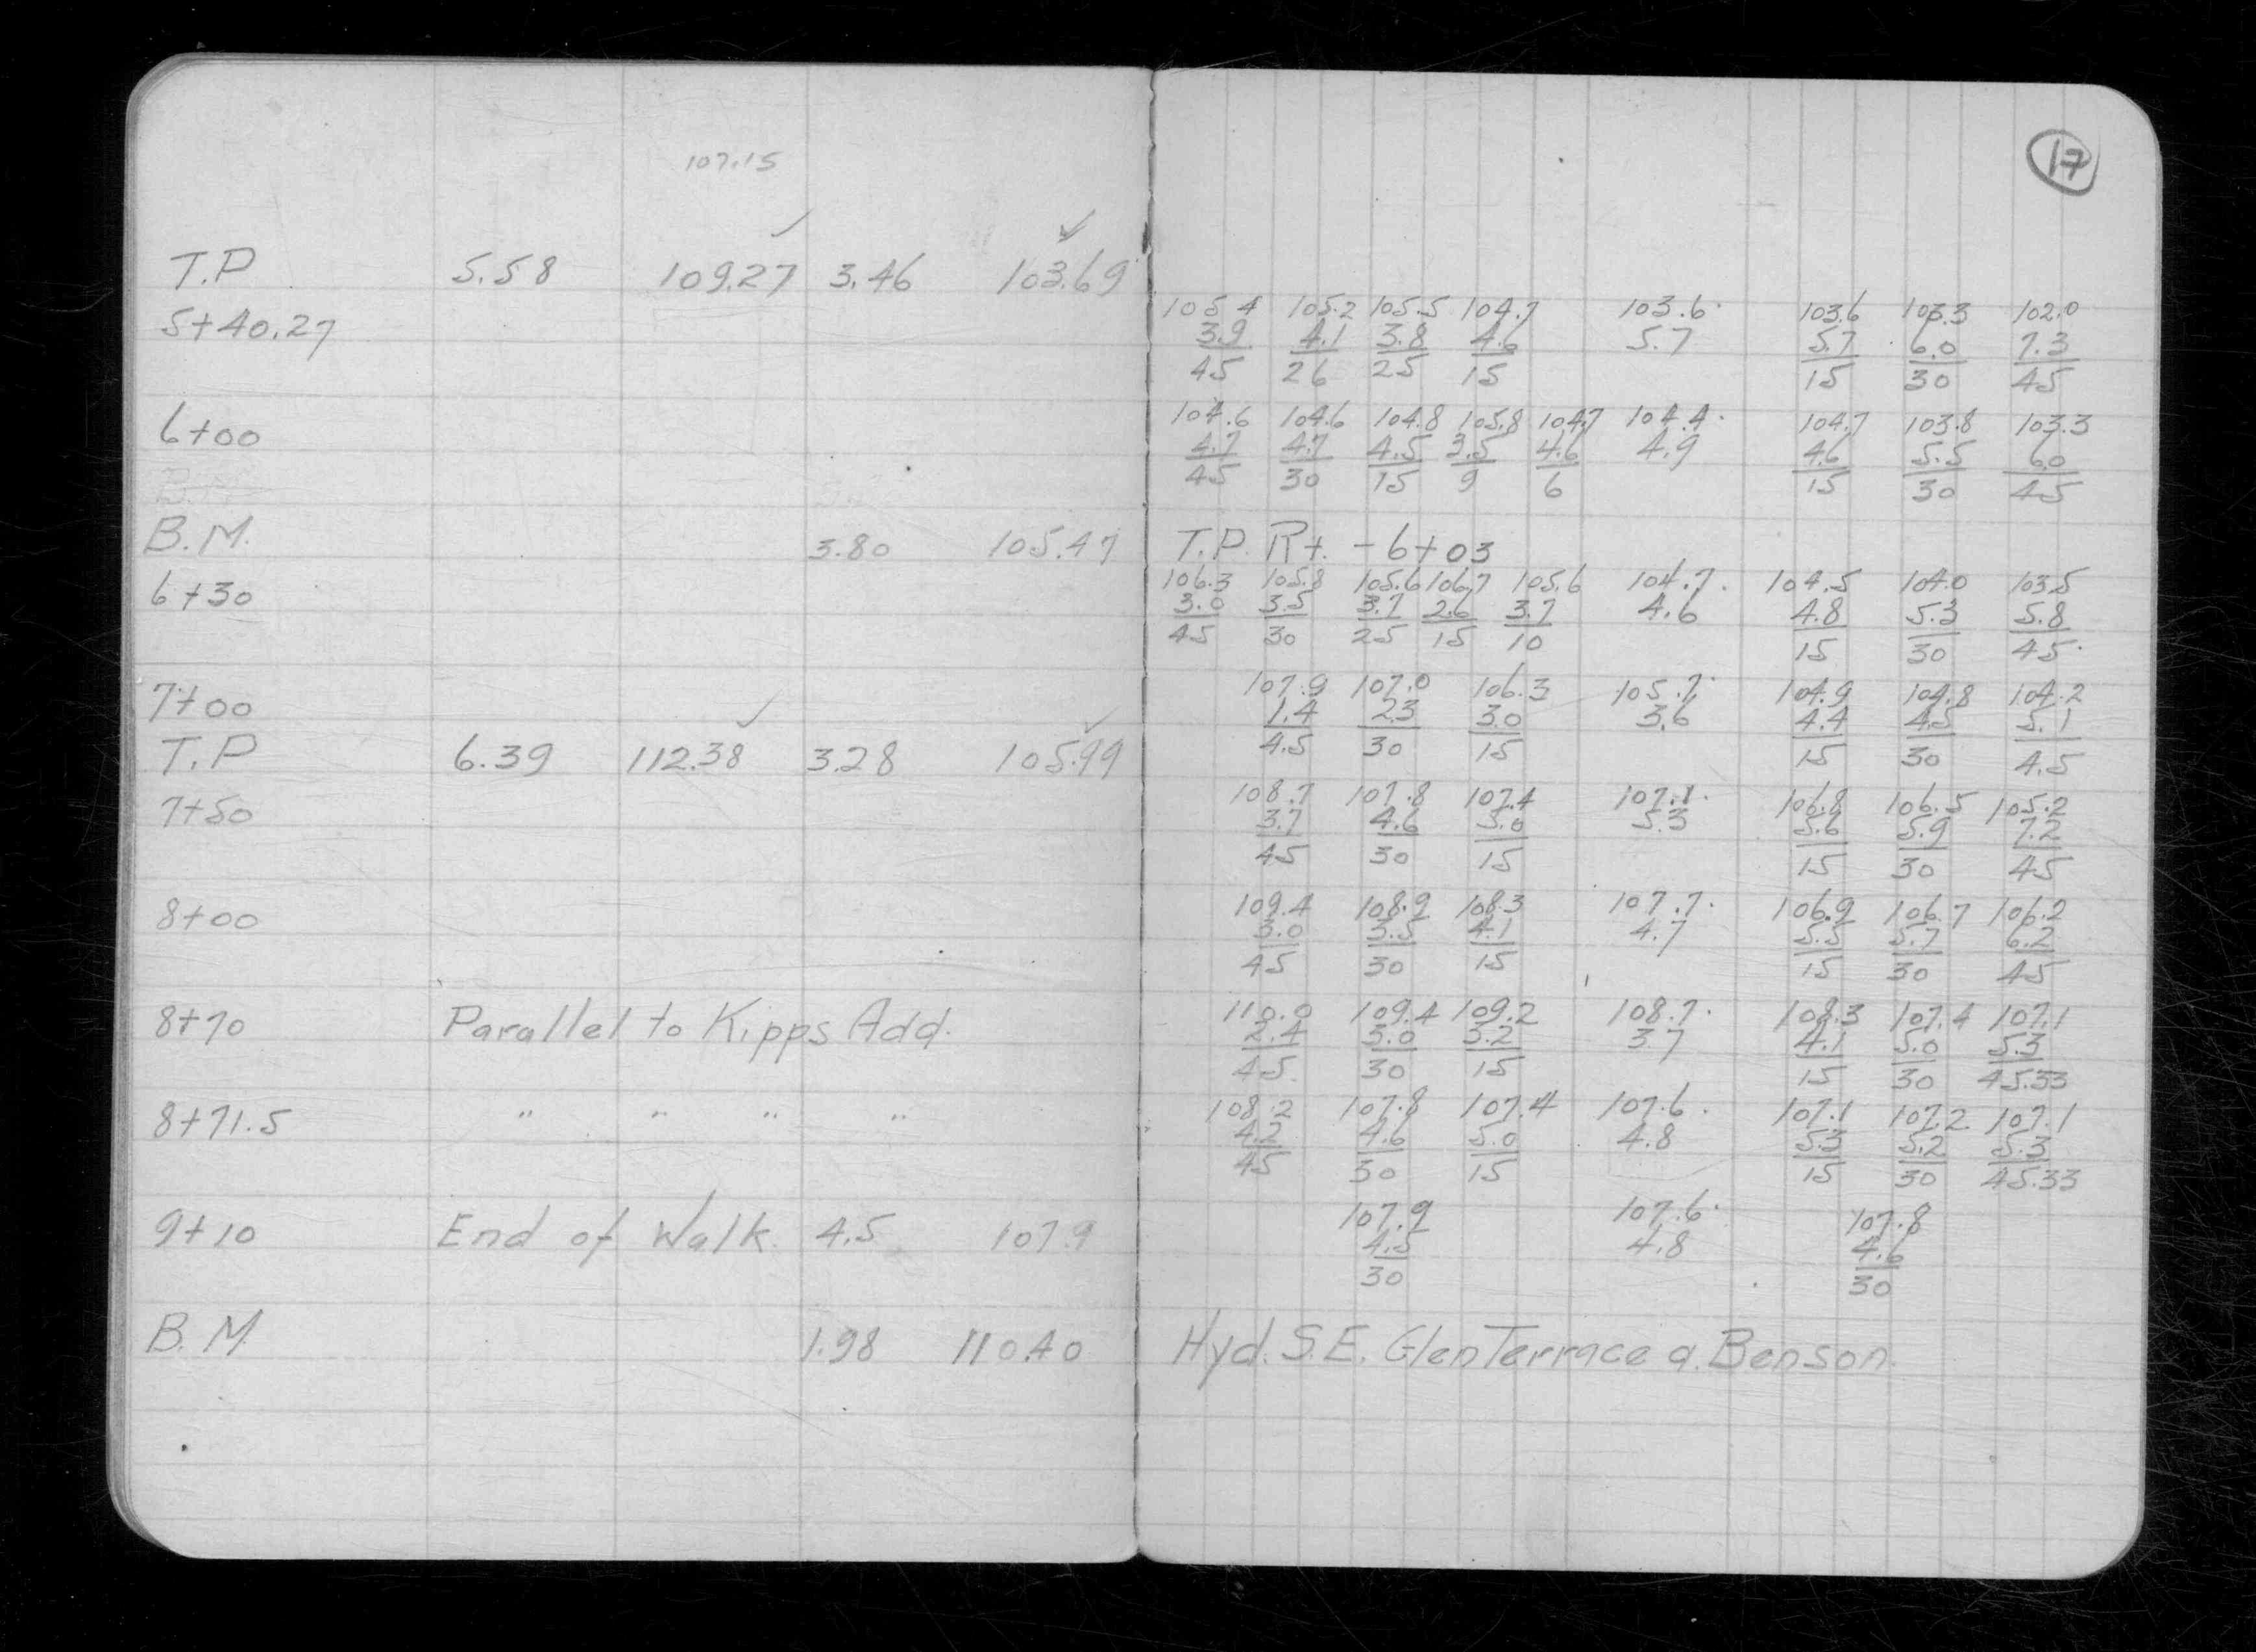 17
107.15
T.P 5.58 109.27 3.46 103.69
105.4 105.2 105.5 104.7 103.6 103.6 103.3 102.0
5+40.27 3.9 4.1 3.8 4.6 5.7 5.7 6.0 7.3
45 26 25 15 15 30 45
104.6 104.6 104.8 105.8 104.7 104.4 104.7 103.8 103.3
6+00 4.7 4.7 4.5 3.5 4.6 4.9 4.6 5.5 6.0
45 30 15 9 6 15 30 45
B.M. 3.80 105.47 T.P. Rt. - 6+03
106.3 105.8 105.6 106.7 105.6 104.7 104.5 104.0 103.5
6+30 3.0 3.5 3.7 2.6 3.7 4.6 4.8 5.3 5.8
45 30 25 15 10 15 30 45
107.9 107.0 106.3 105.7 104.9 104.8 104.2
7+00 1.4 2.3 3.0 3.6 4.4 4.5 5.1
45 30 15 15 30 45
T.P 6.39 112.38 3.28 105.99
108.7 107.8 107.4 107.1 106.8 106.5 105.2
7+50 3.7 4.6 5.0 5.3 5.6 5.9 7.2
45 30 15 15 30 45
109.4 108.9 108.3 107.7 106.9 106.7 106.2
8+00 3.0 3.5 4.1 4.7 5.5 5.7 6.2
45 30 15 15 30 45
110.0 109.4 109.2 108.7 108.3 107.4 107.1
8+70 Parallel to Kipps Add. 2.4 3.0 3.2 3.7 4.1 5.0 5.3
45 30 15 15 30 45.33
108.2 107.8 107.4 107.6 107.1 107.2 107.1
8+71.5 " " " " 4.2 4.6 5.0 4.8 5.3 5.2 5.3
45 30 15 15 30 45.33
107.9 107.6 107.8
9+10 End of Walk. 4.5 107.9 4.5 4.8 4.6
30 30
B.M. 1.98 110.40 Hyd. S.E. Glen Terrace a. Benson.